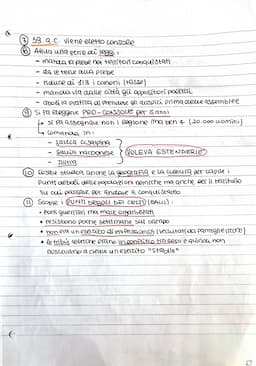 ⑦ 59 a.C. viene eletto console
⑧ Attua una serie di leggi:
- manda la plebe nei territori conquistati
- da le terre alla plebe
- riduce di 1/3 i canoni (tasse)
- manda via dalle città gli oppositori
- abolì la pratica di prendere gli auspici prima delle assemblee
⑨ Si fa eleggere PRO-CONSOLE per 5 anni
↳ si fa assegnare non 1 legione ma ben 4 (20.000 uomini)
↳ comanda in:
- Gallia cisalpina
- Gallia narbonese
- Illiria
VOLEVA ESTENDERLE
⑩ Cesare studia anche la geografia e la cultura per capire i
punti deboli delle popolazioni nemiche ma anche per il territorio
su cui
⑪ Scopre i PUNTI DEBOLI DEI CELTI (GALLI):
• Forti guerrieri ma male organizzati
• resistono poche settimane sul campo
• non era un esercito di professionisti
• le tribù celtiche erano in conflitto tra loro e quindi non
riuscivano a creare un esercito "stabile"